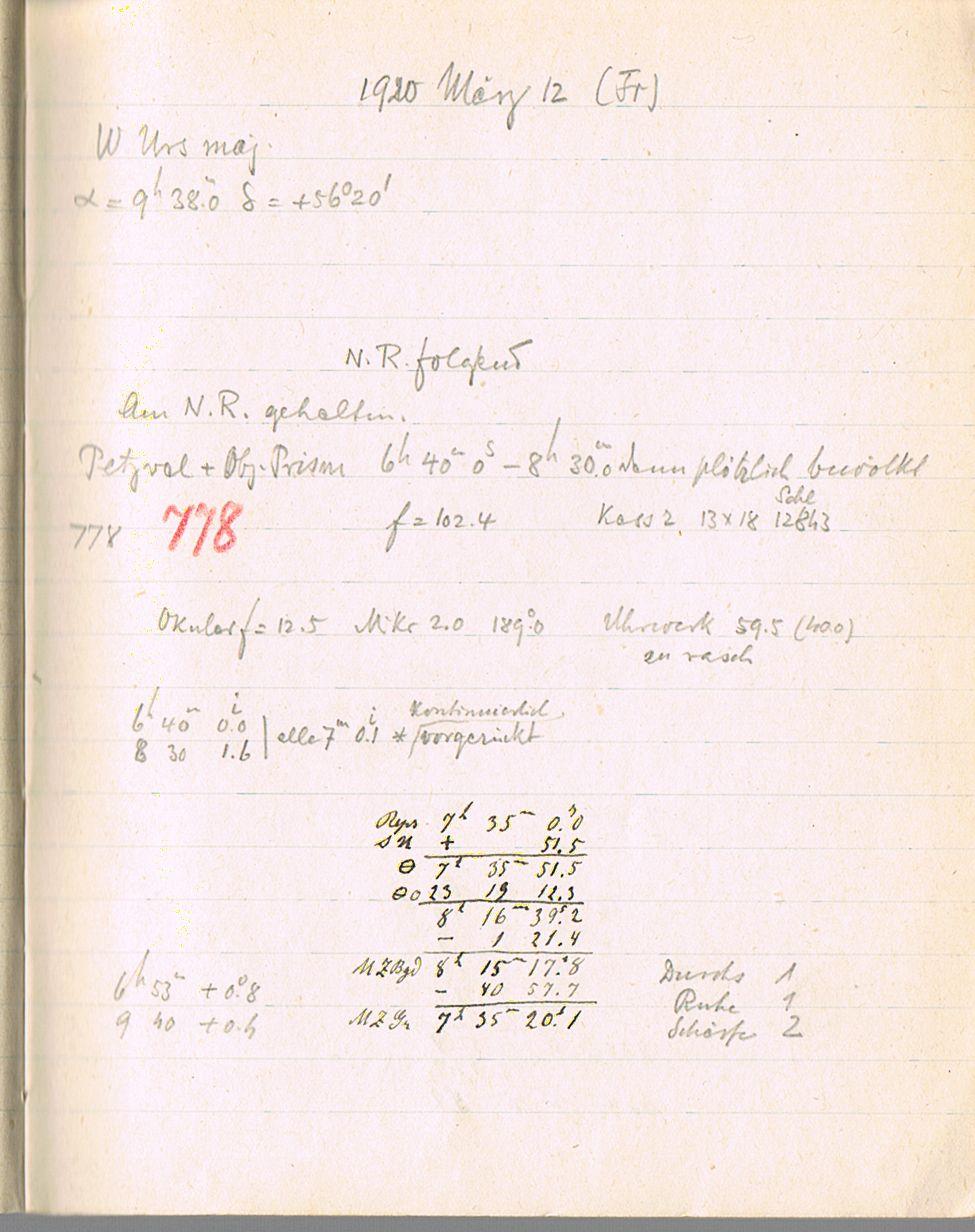 1920 März 12 (Fr)
W Urs maj.
α = 9h 38m.0 δ = +56°20'
N.R. folgend
Am N.R. gehalten.
Petzval + Obj. Prism 6h 40m 0s – 8h 30m.0 dann plötzlich bewölkt
778 778 f = 102.4 Kass 2 13×18 Schl 12843
Okular f = 12.5 Mikr 2.0 189°.0 Uhrwerk 59.5 (40.0)
zu rasch
6h 40m 0.0i
8 30 1.6 | alle 7m 0.1i * kontinuierlich vorgerückt
Reps 7h 35m 0s.0
+ 51.5
θ 7h 35m 51.5
θ0 23 19 12.3
8h 16m 39s.2
– 1 21.4
MZBgd 8h 15m 17s.8
– 40 57.7
MZGr 7h 35m 20s.1
6h 53m +0°.8
9 40 +0.4
Durchs 1
Ruhe 1
Schärfe 2